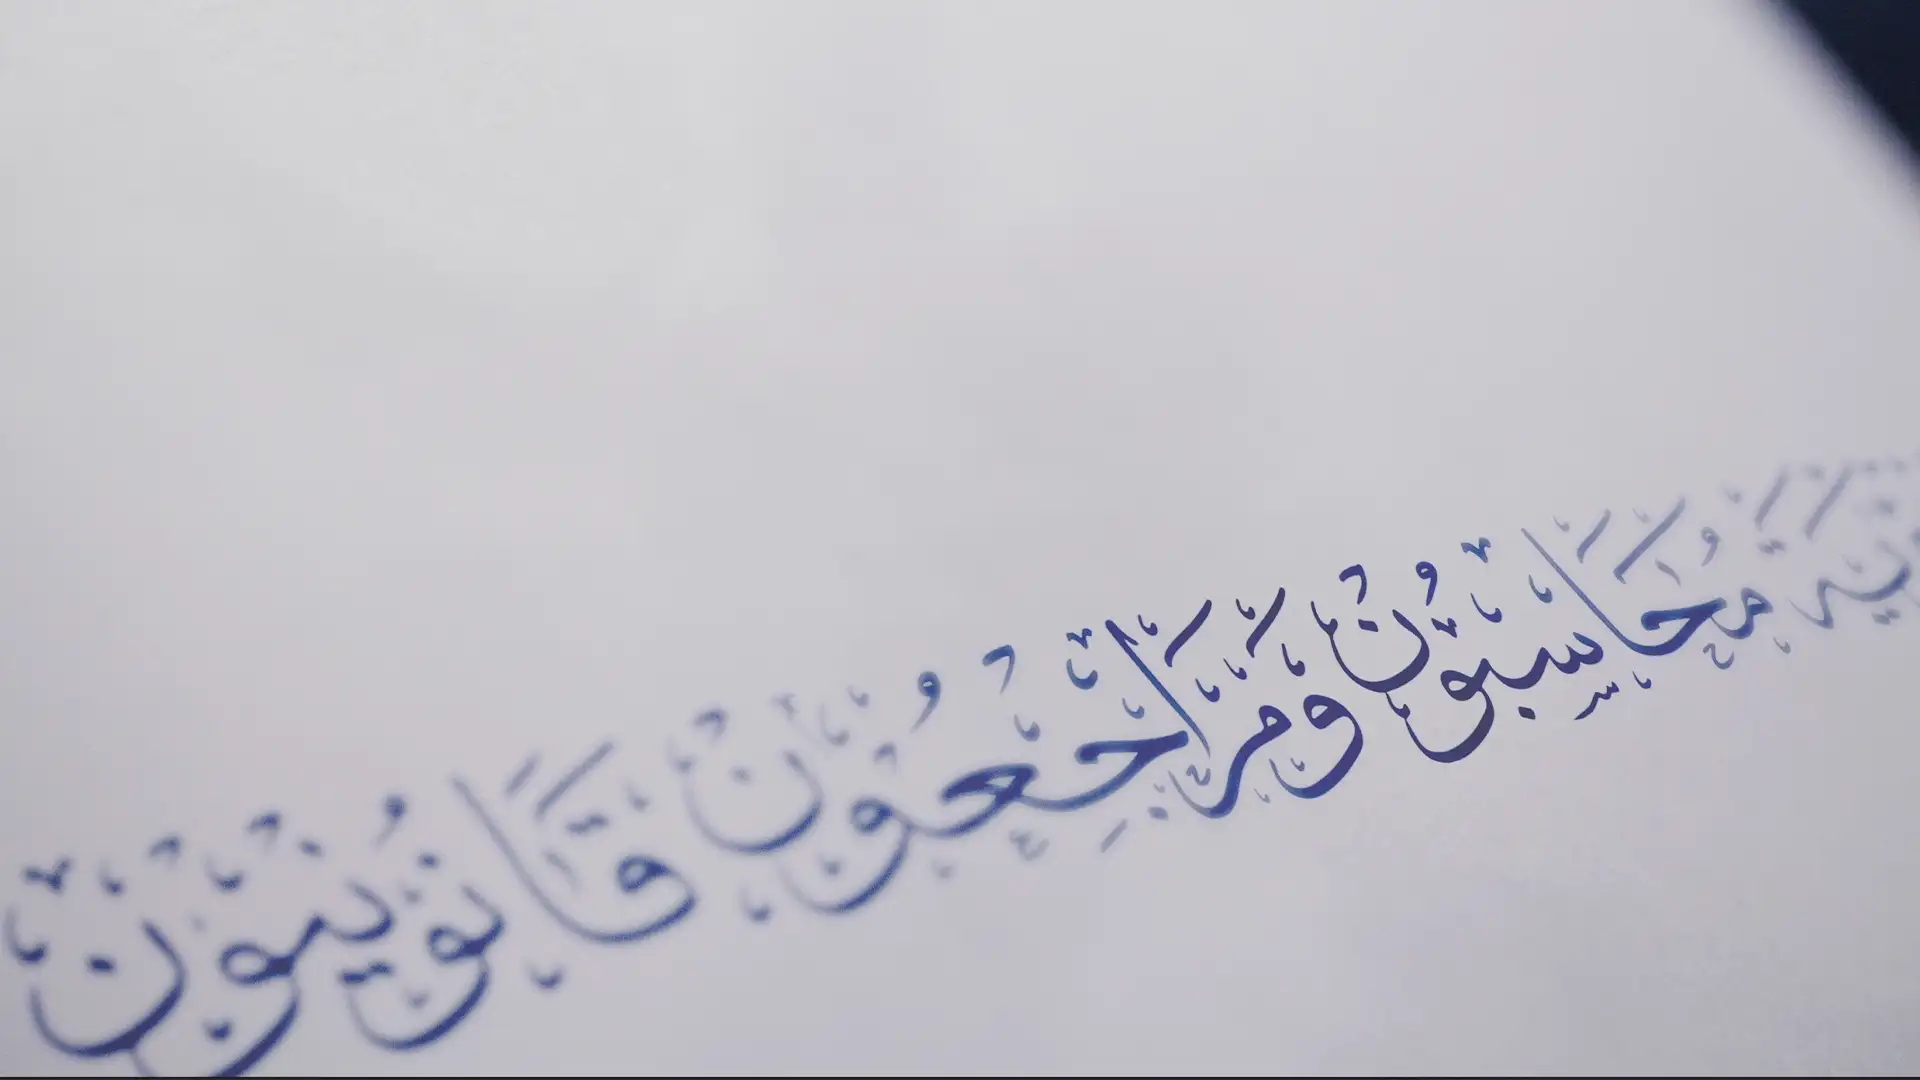 مُحَاسِبُوْنَ وَمُرَاجِعُوْنَ قَانُوْنِيُّوْنَ